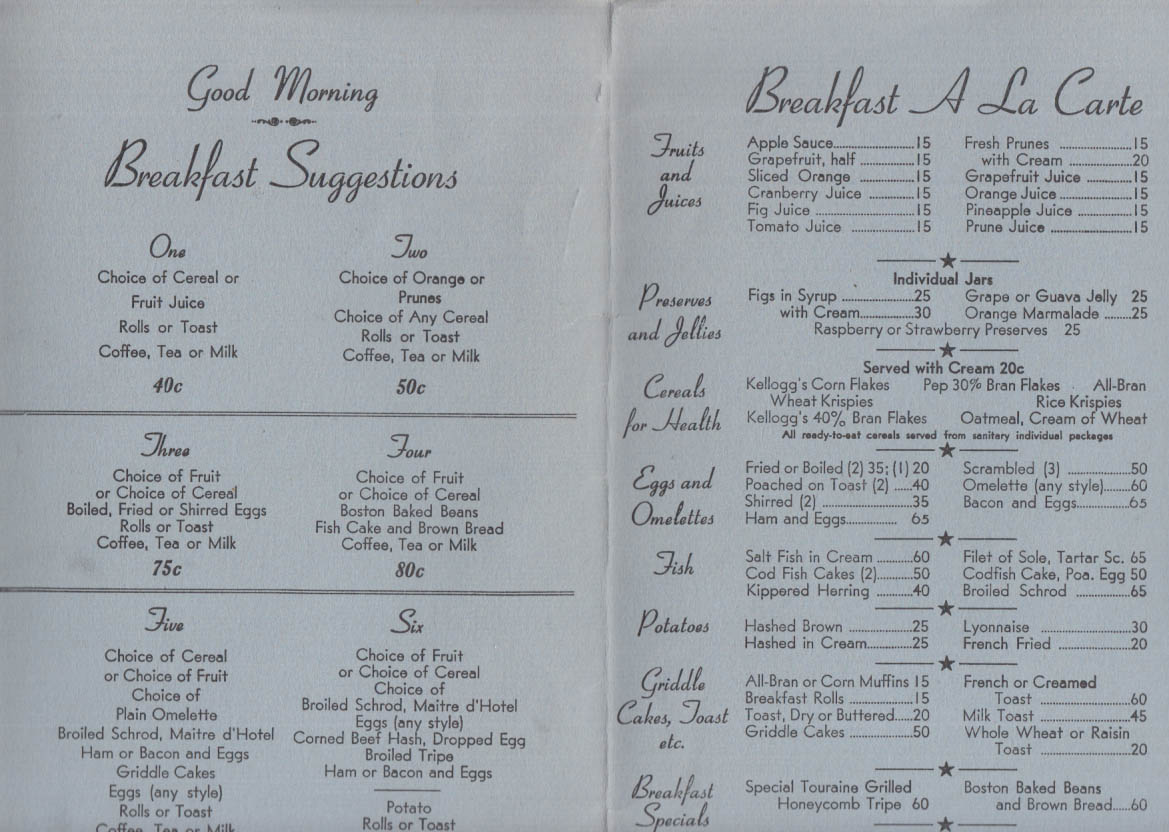 Good Morning
Breakfast Suggestions
One
Choice of Cereal or
Fruit Juice
Rolls or Toast
Coffee, Tea or Milk
40c
Two
Choice of Orange or
Prunes
Choice of Any Cereal
Rolls or Toast
Coffee, Tea or Milk
50c
Three
Choice of Fruit
or Choice of Cereal
Boiled, Fried or Shirred Eggs
Rolls or Toast
Coffee, Tea or Milk
75c
Four
Choice of Fruit
or Choice of Cereal
Boston Baked Beans
Fish Cake and Brown Bread
Coffee, Tea or Milk
80c
Five
Choice of Cereal
or Choice of Fruit
Choice of
Plain Omelette
Broiled Schrod, Maitre d'Hotel
Ham or Bacon and Eggs
Griddle Cakes
Eggs (any style)
Rolls or Toast
Coffee, Tea or Milk
Six
Choice of Fruit
or Choice of Cereal
Choice of
Broiled Schrod, Maitre d'Hotel
Eggs (any style)
Corned Beef Hash, Dropped Egg
Broiled Tripe
Ham or Bacon and Eggs
Potato
Rolls or Toast
Breakfast A La Carte
Fruits
and
Juices
Apple Sauce..................15
Grapefruit, half ............15
Sliced Orange ............15
Cranberry Juice ..........15
Fig Juice ......................15
Tomato Juice ..............15
Fresh Prunes ................15
with Cream ................20
Grapefruit Juice ..........15
Orange Juice................15
Pineapple Juice ............15
Prune Juice ..................15
Preserves
and Jellies
Individual Jars
Figs in Syrup ................25
with Cream............30
Grape or Guava Jelly 25
Orange Marmalade ......25
Raspberry or Strawberry Preserves 25
Cereals
for Health
Served with Cream 20c
Kellogg's Corn Flakes Pep 30% Bran Flakes All-Bran
Wheat Krispies Rice Krispies
Kellogg's 40% Bran Flakes Oatmeal, Cream of Wheat
All ready-to-eat cereals served from sanitary individual packages
Eggs and
Omelettes
Fried or Boiled (2) 35; (1) 20
Poached on Toast (2) .....40
Shirred (2) ......................35
Ham and Eggs.............. 65
Scrambled (3) ................50
Omelette (any style).......60
Bacon and Eggs..............65
Fish
Salt Fish in Cream .........60
Cod Fish Cakes (2).........50
Kippered Herring ..........40
Filet of Sole, Tartar Sc. 65
Codfish Cake, Poa. Egg 50
Broiled Schrod ..............65
Potatoes
Hashed Brown ..............25
Hashed in Cream...........25
Lyonnaise ......................30
French Fried ..................20
Griddle
Cakes, Toast
etc.
All-Bran or Corn Muffins 15
Breakfast Rolls ..............15
Toast, Dry or Buttered.....20
Griddle Cakes ...............50
French or Creamed
Toast ........................60
Milk Toast ....................45
Whole Wheat or Raisin
Toast ........................20
Breakfast
Specials
Special Touraine Grilled
Honeycomb Tripe 60
Boston Baked Beans
and Brown Bread.....60